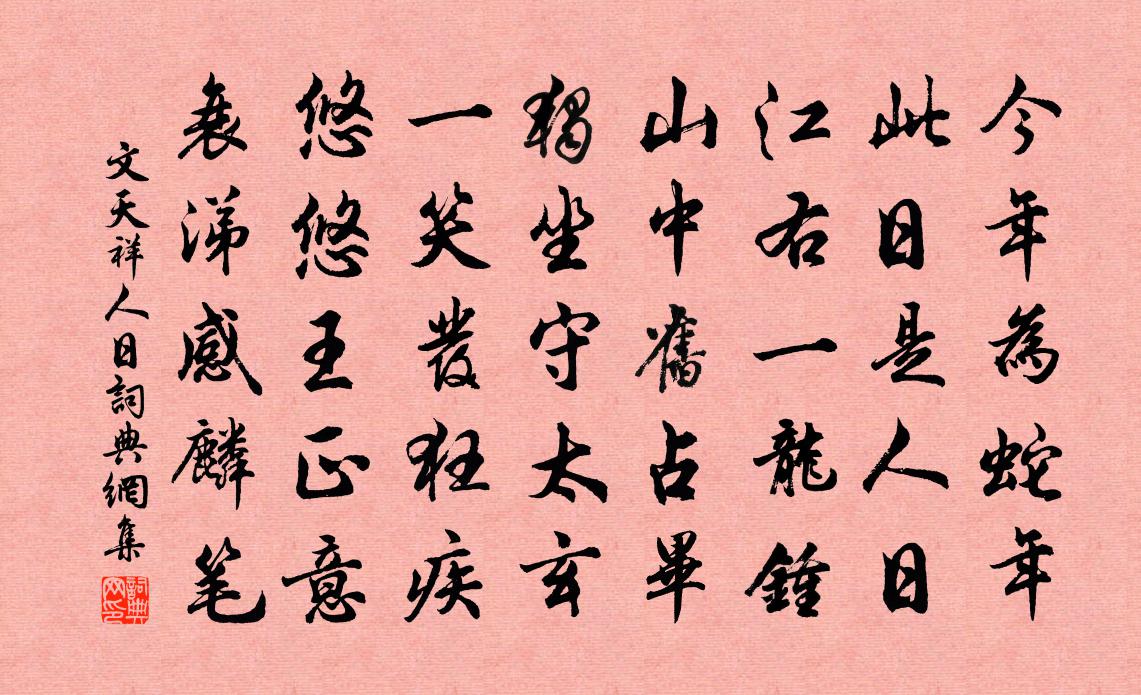 今年為蛇年
此日是人日
江右一龍鍾
山中舊占畢
獨坐守太玄
一笑發狂疾
悠悠王正意
衰涕感麟笔
文天祥人日詞典網集
詞典网印